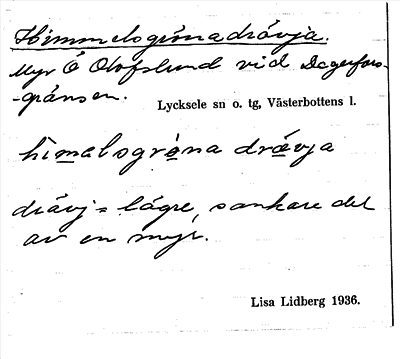 Himmelsgrönadrävja.
Myr Ö Olofslund vid Dagerfors-
-gränsen.
Lycksele sn o. tg, Västerbottens l.
himalsgröna drävja
drävj = lägre, sankare del
av en myr.
Lisa Lidberg 1936.